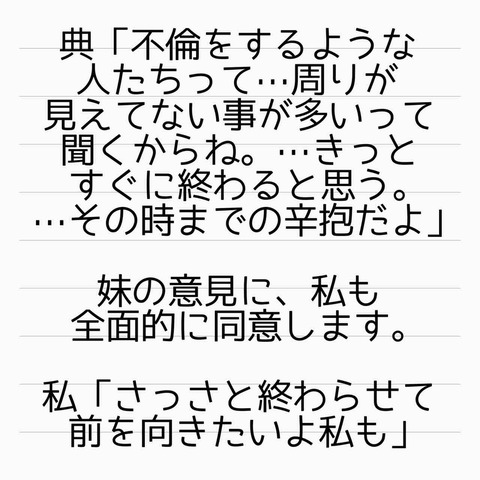 典「不倫をするような
人たちって…周りが
見えてない事が多いって
聞くからね。…きっと
すぐに終わると思う。
…その時までの辛抱だよ」
妹の意見に、私も
全面的に同意します。
私「さっさと終わらせて
前を向きたいよ私も」